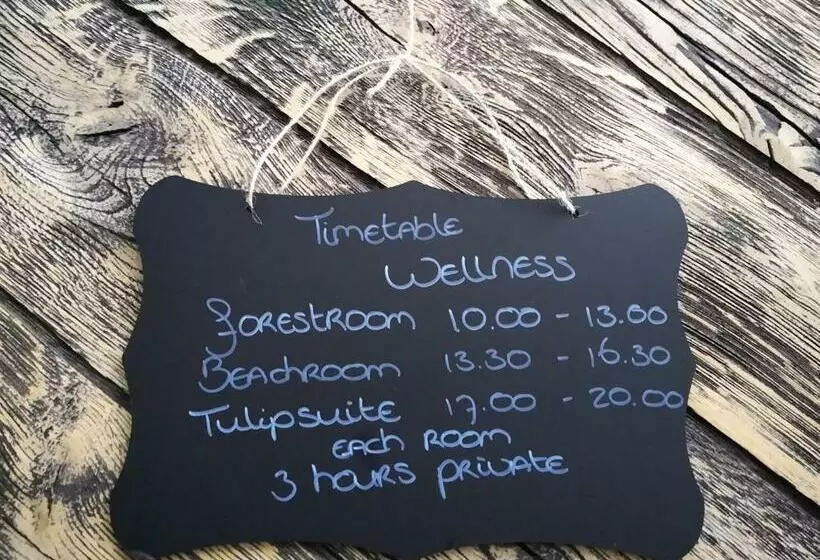 Timetable
Wellness
Forestroom 10.00 - 13.00
Beachroom 13.30 - 16.30
Tulipsuite 17.00 - 20.00
Each room
3 hours private